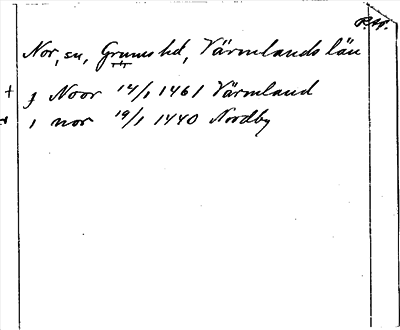 RAP.
Nor, sn, Grums hd, Värmlands län
+ j Noor 14/1 1461 Värmland
+ i nor 19/1 1440 Nordby